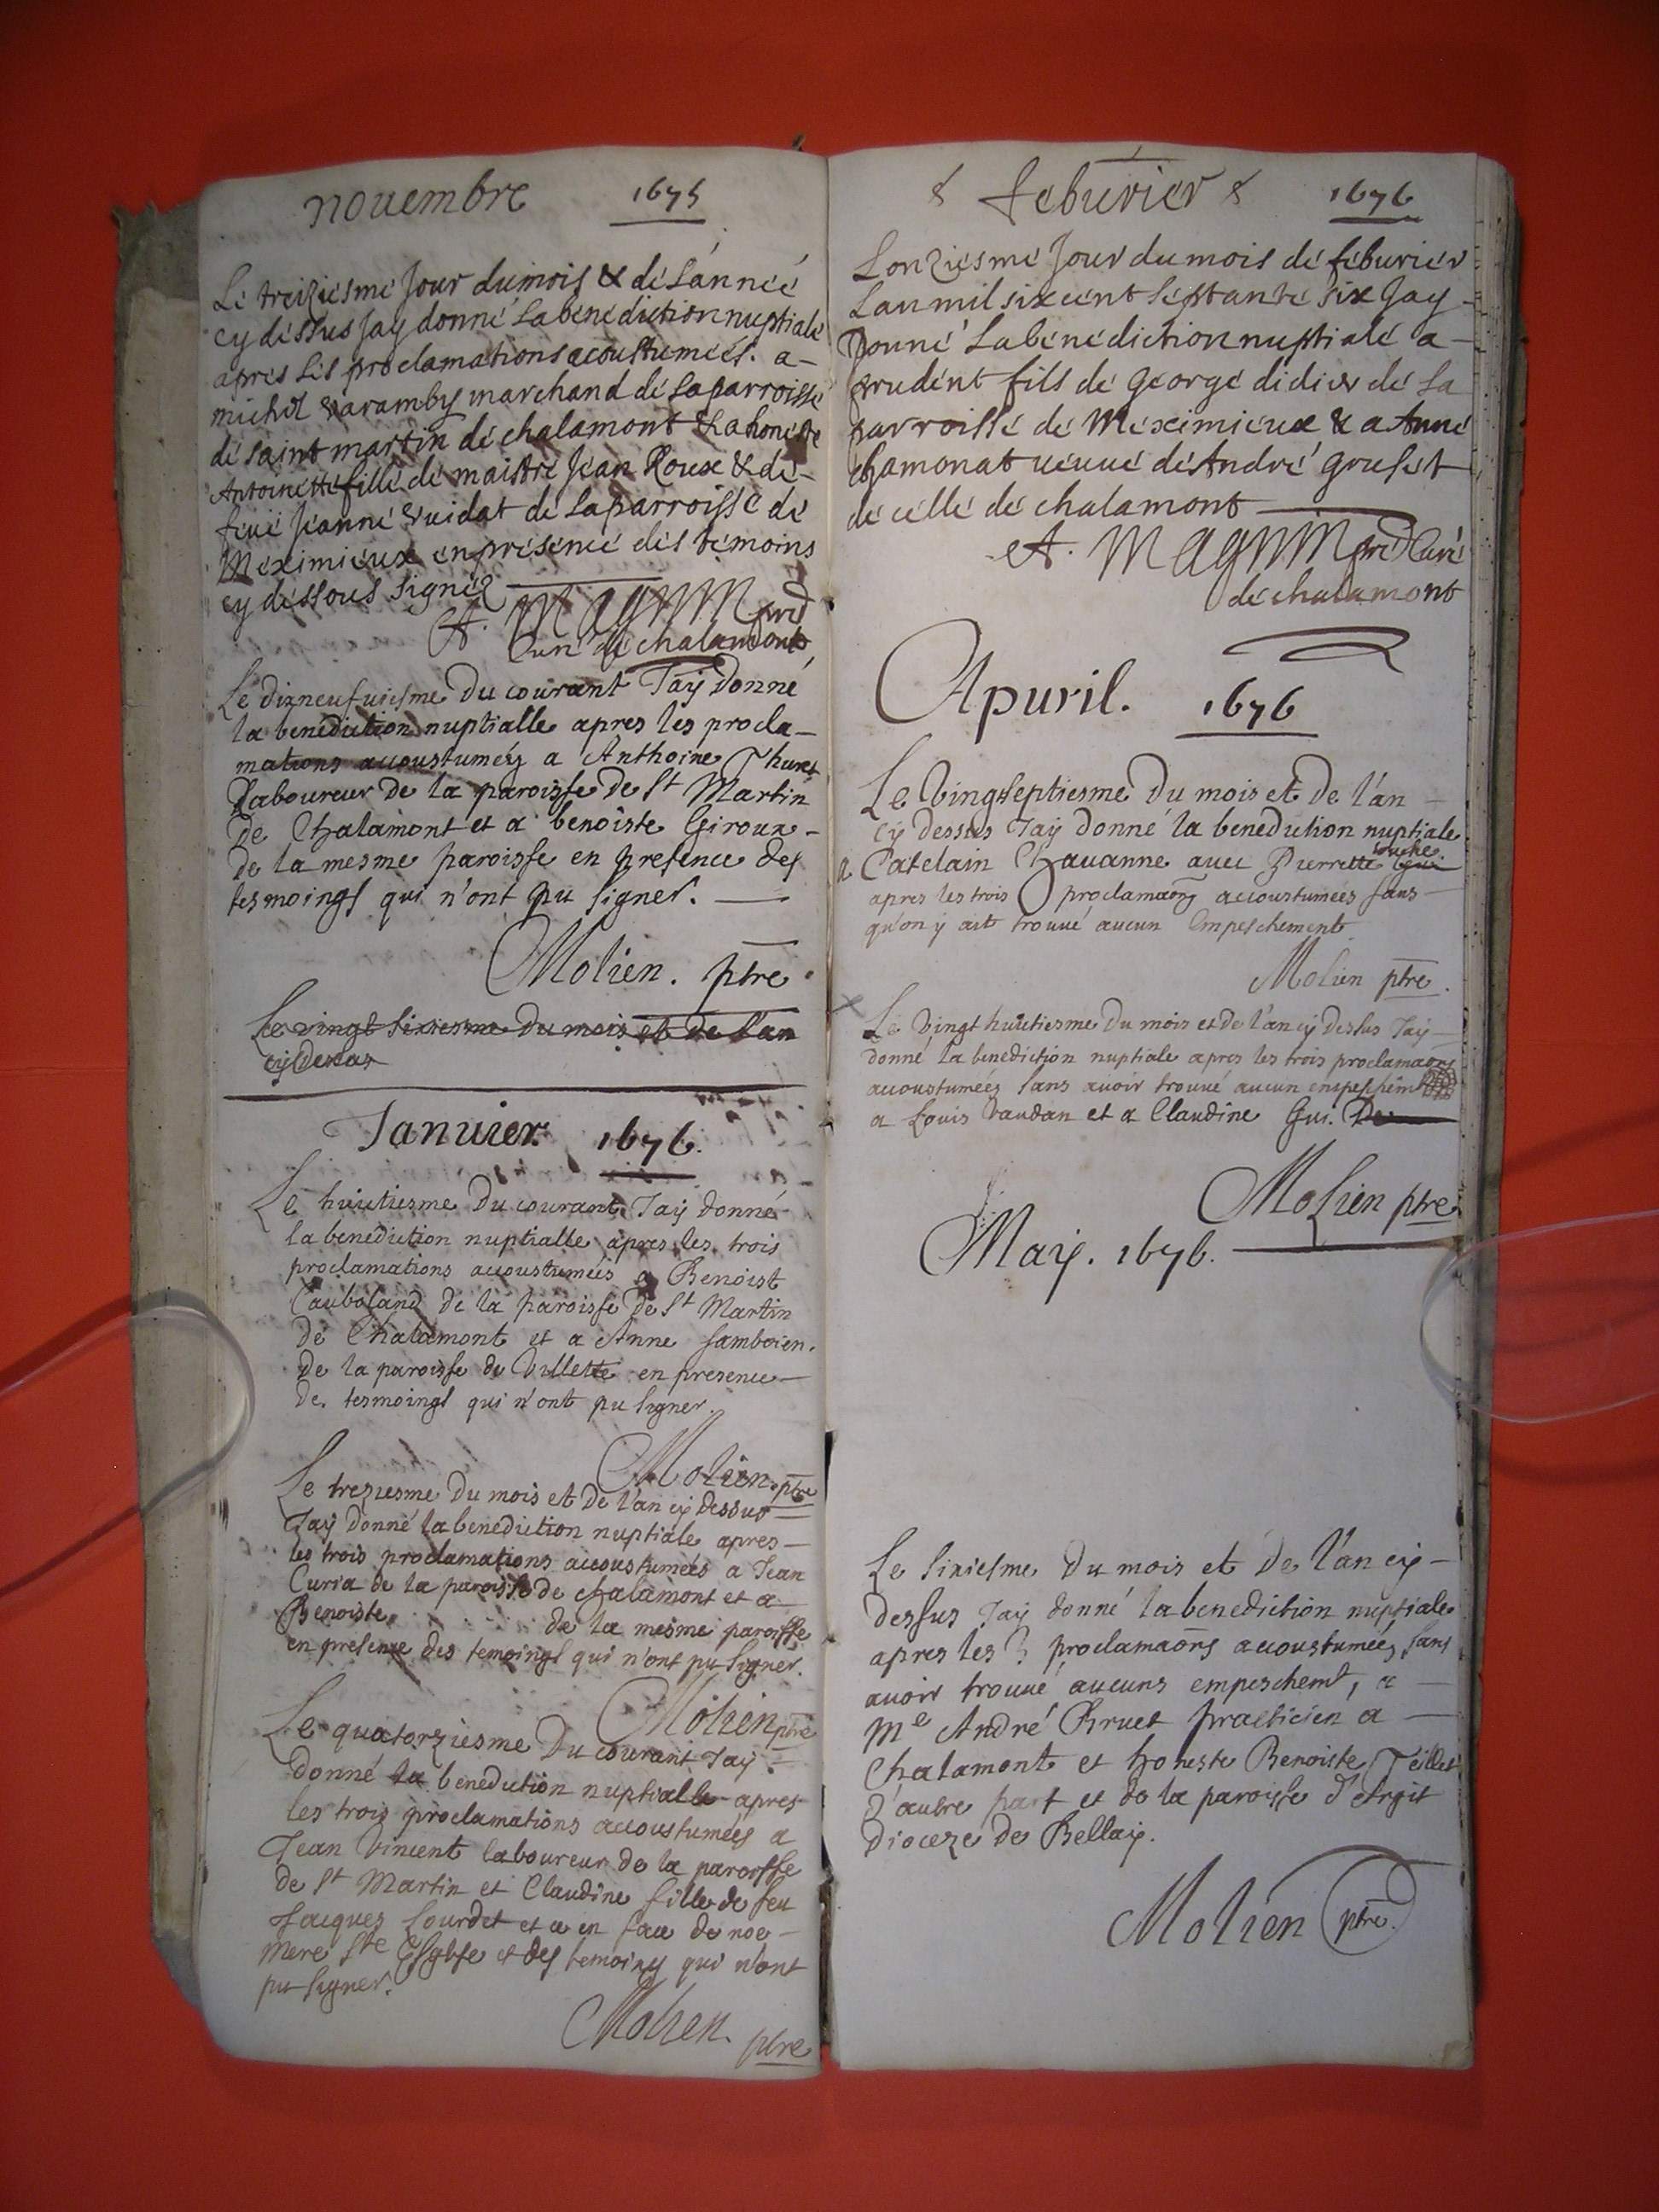 novembre 1675
Le treiziesme Jour du mois & de L'année
cy dessus Jay donné La benediction nuptiale
apres Les proclamations acoustumées. a
michel varamby marchand de La parroisse
de saint martin de chalamont & a honeste
Antoinette fille de maistre Jean Roux & de
feüe Jeanne vuidat de La parroisse de
Meximieux en presence des temoins
cy dessous signéz
A. MAGNIN pre
Curé de chalamont
Le dixneufuiesme Du courant Jaÿ Donné
la benediction nuptialle apres les procla-
mations accoustuméz a Anthoine Thuret
Laboureur De la paroisse de St Martin
De Chalamont et a benoiste Giroux
de la mesme paroisse en presence des
tesmoings qui n'ont pu signer.
Molien. ptre
Le vingt sixiesme du mois et de l'an
cÿ dessus
Januier. 1676.
Le huictiesme Du courant Jaÿ donné
la benediction nuptialle apres les trois
proclamations accoustumées a Benoist
de la paroisse de St Martin
de Chalamont et a Anne Jamboien.
De la paroisse de Villette en presence
De tesmoings qui n'ont pu signer.
Molien. ptre
Le treziesme Du mois et De l'an cÿ dessus
Jaÿ Donné la benediction nuptiale apres
les trois proclamations accoustumées a Jean
Curia de la paroisse de chalamont et a
Benoiste de la mesme paroisse
en presence des temoings qui n'ont pu signer.
Molien ptre
Le quatorziesme Du courant Jaÿ
donné la benediction nuptialle apres
les trois proclamations accoustumées a
Jean Vincent laboureur de la paroisse
de St Martin et Claudine fille de feu
Jacques Lourdet et ce en face de noe
mere Ste Eglise et des temoins qui n'ont
pu signer.
Molien. ptre
& feburier & 1676
Lonziesme Jour du mois de feburier
Lan mil six cent septante six Jay
Donné La benediction nuptiale a
prudent fils de George didier de La
parroisse de Meximieux & a Anne
chamonat ueuue de André grufet
de celle de chalamont
A. MAGNIN pre Curé
de chalamont
Apuril. 1676
Le Vingtseptiesme Du mois et De l'an
cÿ dessus Jaÿ donné la benediction nuptiale
a Catelain Chauanne auec Pierrette
apres les trois proclamaõns accoustumées sans
qu'on ÿ ait trouué aucun Empeschement
Molien ptre.
Le Vingt huictiesme Du mois et de l'an cÿ dessus Jaÿ
donné la benediction nuptiale apres les trois proclamaõns
accoustumées sans auoir trouué aucun empeschem
a Louis Vaudan et a Claudine Gui. De
Molien ptre
Maÿ. 1676.
Le sixiesme Du mois et de l'an cÿ
dessus Jaÿ donné la benediction nuptiale
apres les 3 proclamaõns accoustumées, sans
auoir trouué aucuns empeschemt, a
Me André Bruet practicien a
Chalamont et honeste Benoiste Teillet
d'autre part et de la paroisse d'Argit
Dioceze de Bellaÿ.
Molien ptre.